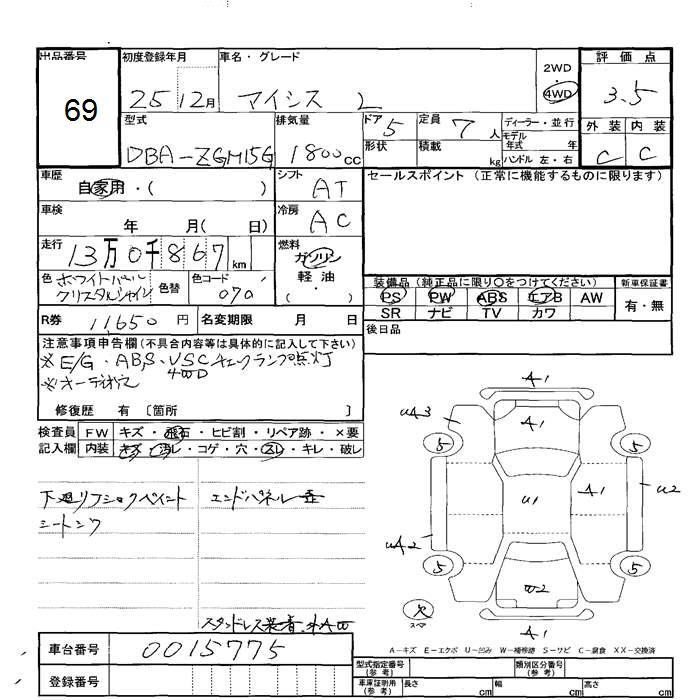 出品番号 初度登録年月 車名・グレード 2WD・4WD 評価点
69 25 12月 アイシス L 3.5
型式 排気量 ドア 5 定員 7人 ディーラー・並行 外装 内装
DBA-ZGM15G 1800cc 形状 積載 kg モデル年式 年 ハンドル 左・右 C C
車歴 自家用・( ) シフト AT セールスポイント (正常に機能するものに限ります)
車検 年 月( 日) 冷房 AC
走行 13万0千867km 燃料 ガソリン 軽油・( )
色 ホワイトパールクリスタルシャイン 色替 色コード 070
装備品 (純正品に限り○をつけてください) 新車保証書
PS PW ABS エアB AW 有・無
SR ナビ TV カワ
R券 11650円 名変期限 月 日 後日品
注意事項申告欄(不具合内容等は具体的に記入して下さい)
※E/G・ABS・VSC チェックランプ点灯
4WD
※オーディオレス
修復歴 有 [箇所 ]
検査員 FW キズ・飛石・ヒビ割・リペア跡・×要
記入欄 内装 キズ・汚レ・コゲ・穴・スレ・キレ・破レ
下廻リフショクペイント エンドパネル歪
シートシワ
スタッドレス装着
A1
UA3 A1
5 5
U1 A1 U2
UA2
5 5
W2
欠
スペア A1
A-キズ E-エクボ U-凹み W-補修跡 S-サビ C-腐食 XX-交換済
車台番号 0015775 型式指定番号(参考) 類別区分番号(参考)
登録番号 車庫証明用(参考) 長さ cm 幅 cm 高さ cm